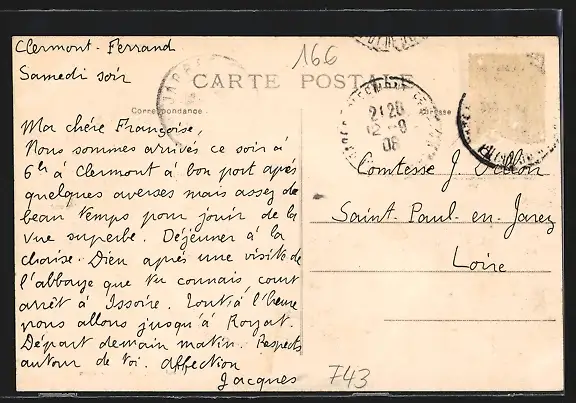 Clermont-Ferrand
Samedi soir
166
CARTE POSTALE
Correspondance
Adresse
Ma chère Françoise,
Nous sommes arrivés ce soir à
6h à Clermont à bon port après
quelques averses mais assez de
beau temps pour jouir de la
vue superbe. Déjeuner à la
Chaise-Dieu après une visite de
l'abbaye que tu connais, court
arrêt à Issoire. Tout à l'heure
nous allons jusqu'à Royat.
Départ demain matin. Respects
autour de toi. Affection
Jacques
21 20
12-9
08
Comtesse J.
Saint-Paul-en-Jarez
Loire
743